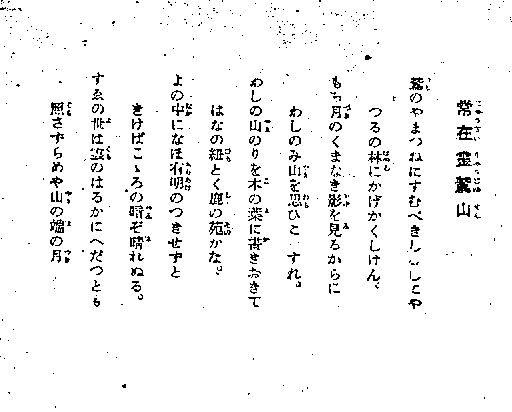 常在靈鷲山
鷲のやまつねにすむべきし しとや
つるの林にかげかくしけん。
もち月のくまなき影を見るからに
わしのみ山を思ひこ すれ。
わしの山のりを木の葉に書きおきて
はなの紐とく鹿の苑かな。
よの中になほ有明のつきせずと
きけばこゝろの暗ぞ晴れぬる。
すゑの世は雲のはるかにへだつとも
照さずらめや山の端の月